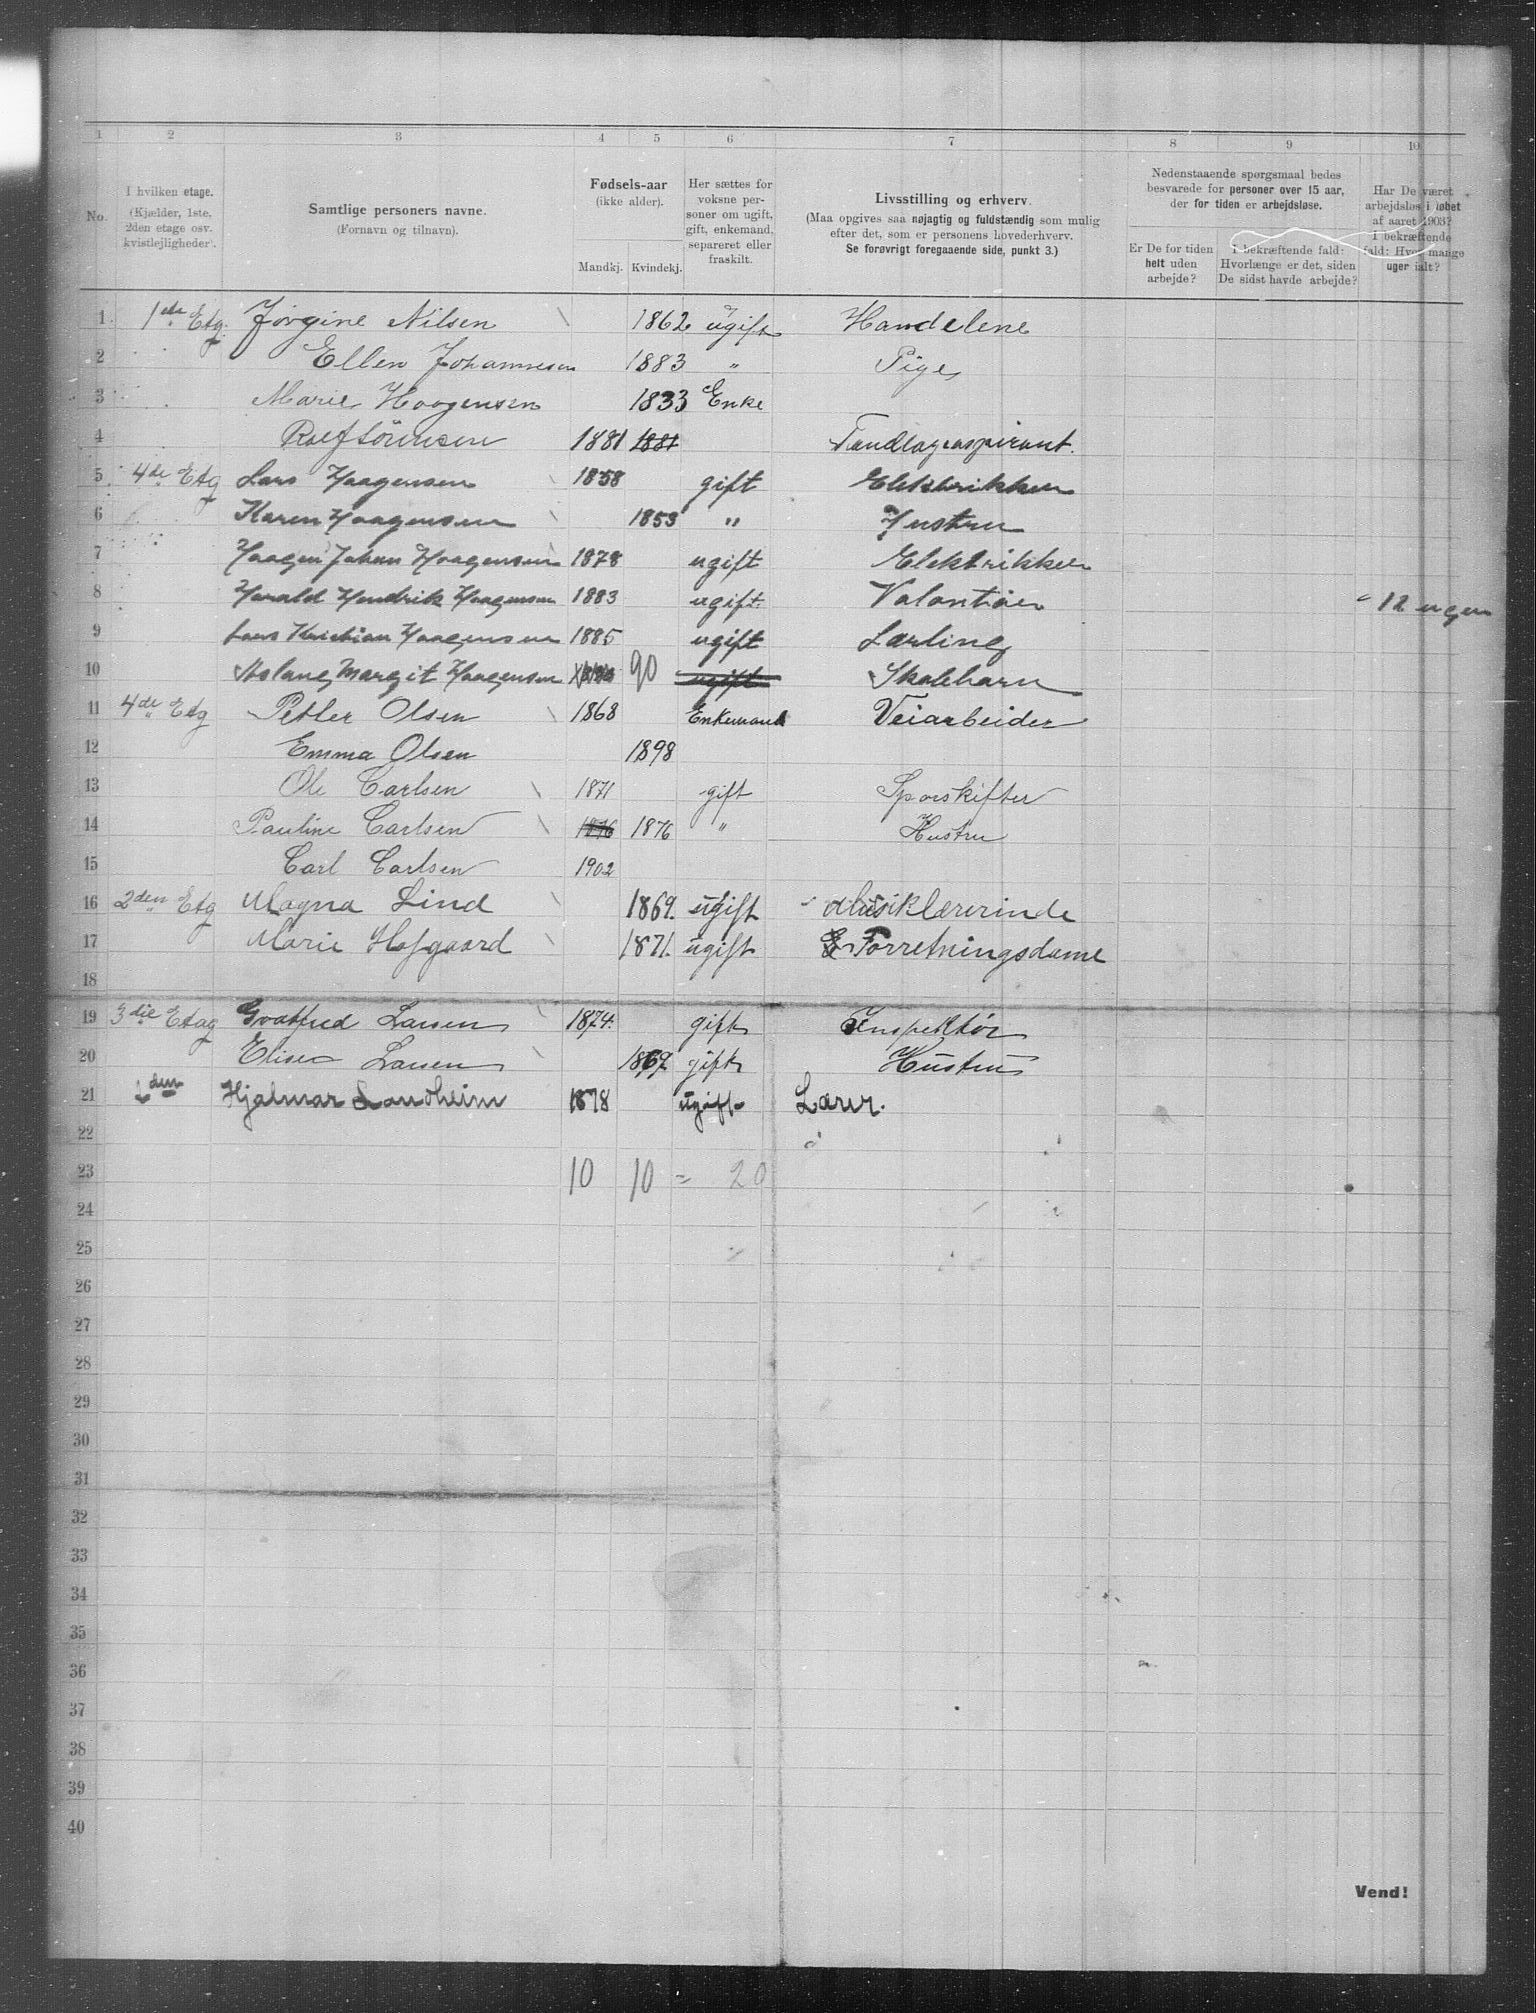 1 2 3 4 5 6 7 8 9 10
No.
I hvilken etage.
(Kjælder, 1ste,
2den etage osv.
kvistlejligheder).
Samtlige personers navne.
(Fornavn og tilnavn).
Fødsels-aar
(ikke alder).
Mandkj. Kvindekj.
Her sættes for
voksne per-
soner om ugift,
gift, enkemand,
separeret eller
fraskilt.
Livsstilling og erhverv.
(Maa opgives saa nøjagtig og fuldstændig som mulig
efter det, som er personens hovederhverv.
Se forøvrigt foregaaende side, punkt 3.)
Nedenstaaende spørgsmaal bedes
besvarede for personer over 15 aar,
der for tiden er arbejdsløse.
Er De for tiden
helt uden
arbejde?
I bekræftende fald:
Hvorlænge er det, siden
De sidst havde arbejde?
Har De været
arbejdsløs i løbet
af aaret 1903?
I bekræftende
fald: Hvor mange
uger ialt?
1 1ste Etg. Jørgine Nilsen 1862 ugift Handelene
2 Ellen Johannesen 1883 " Pige
3 Marie Haagensen 1833 Enke
4 Rolf Sörensen 1881 1881 Tandlægeaspirant.
5 4de Etg Lars Haagensen 1858 gift Elektrikker
6 Karen Haagensen 1853 " Hustru
7 Haagen Johan Haagensen 1878 ugift Elektrikker
8 Harald Hendrik Haagensen 1883 ugift. Valontiør 12 uger
9 Lars Kristian Haagensen 1885 ugift Lærling
10 Aslaug Margit Haagensen 90 ugift Skolebarn
11 4de Etg Petter Olsen 1868 Enkemand Veiarbeider
12 Emma Olsen 1898
13 Ole Carlsen 1871 gift Sporskifter
14 Pauline Carlsen 1876 1876 " Hustru
15 Carl Carlsen 1902
16 2den Etg Magna Lind 1869. ugift Musiklærerinde
17 Marie Hofgaard 1871. ugift Forretningsdame
18
19 3die Etag Gottfred Larsen 1874. gift Inspektør
20 Elise Larsen 1869. gift Hustru
21 Hjalmar Landheim 1878 ugift Lærer.
22
23 10 10 = 20
24
25
26
27
28
29
30
31
32
33
34
35
36
37
38
39
40
Vend!